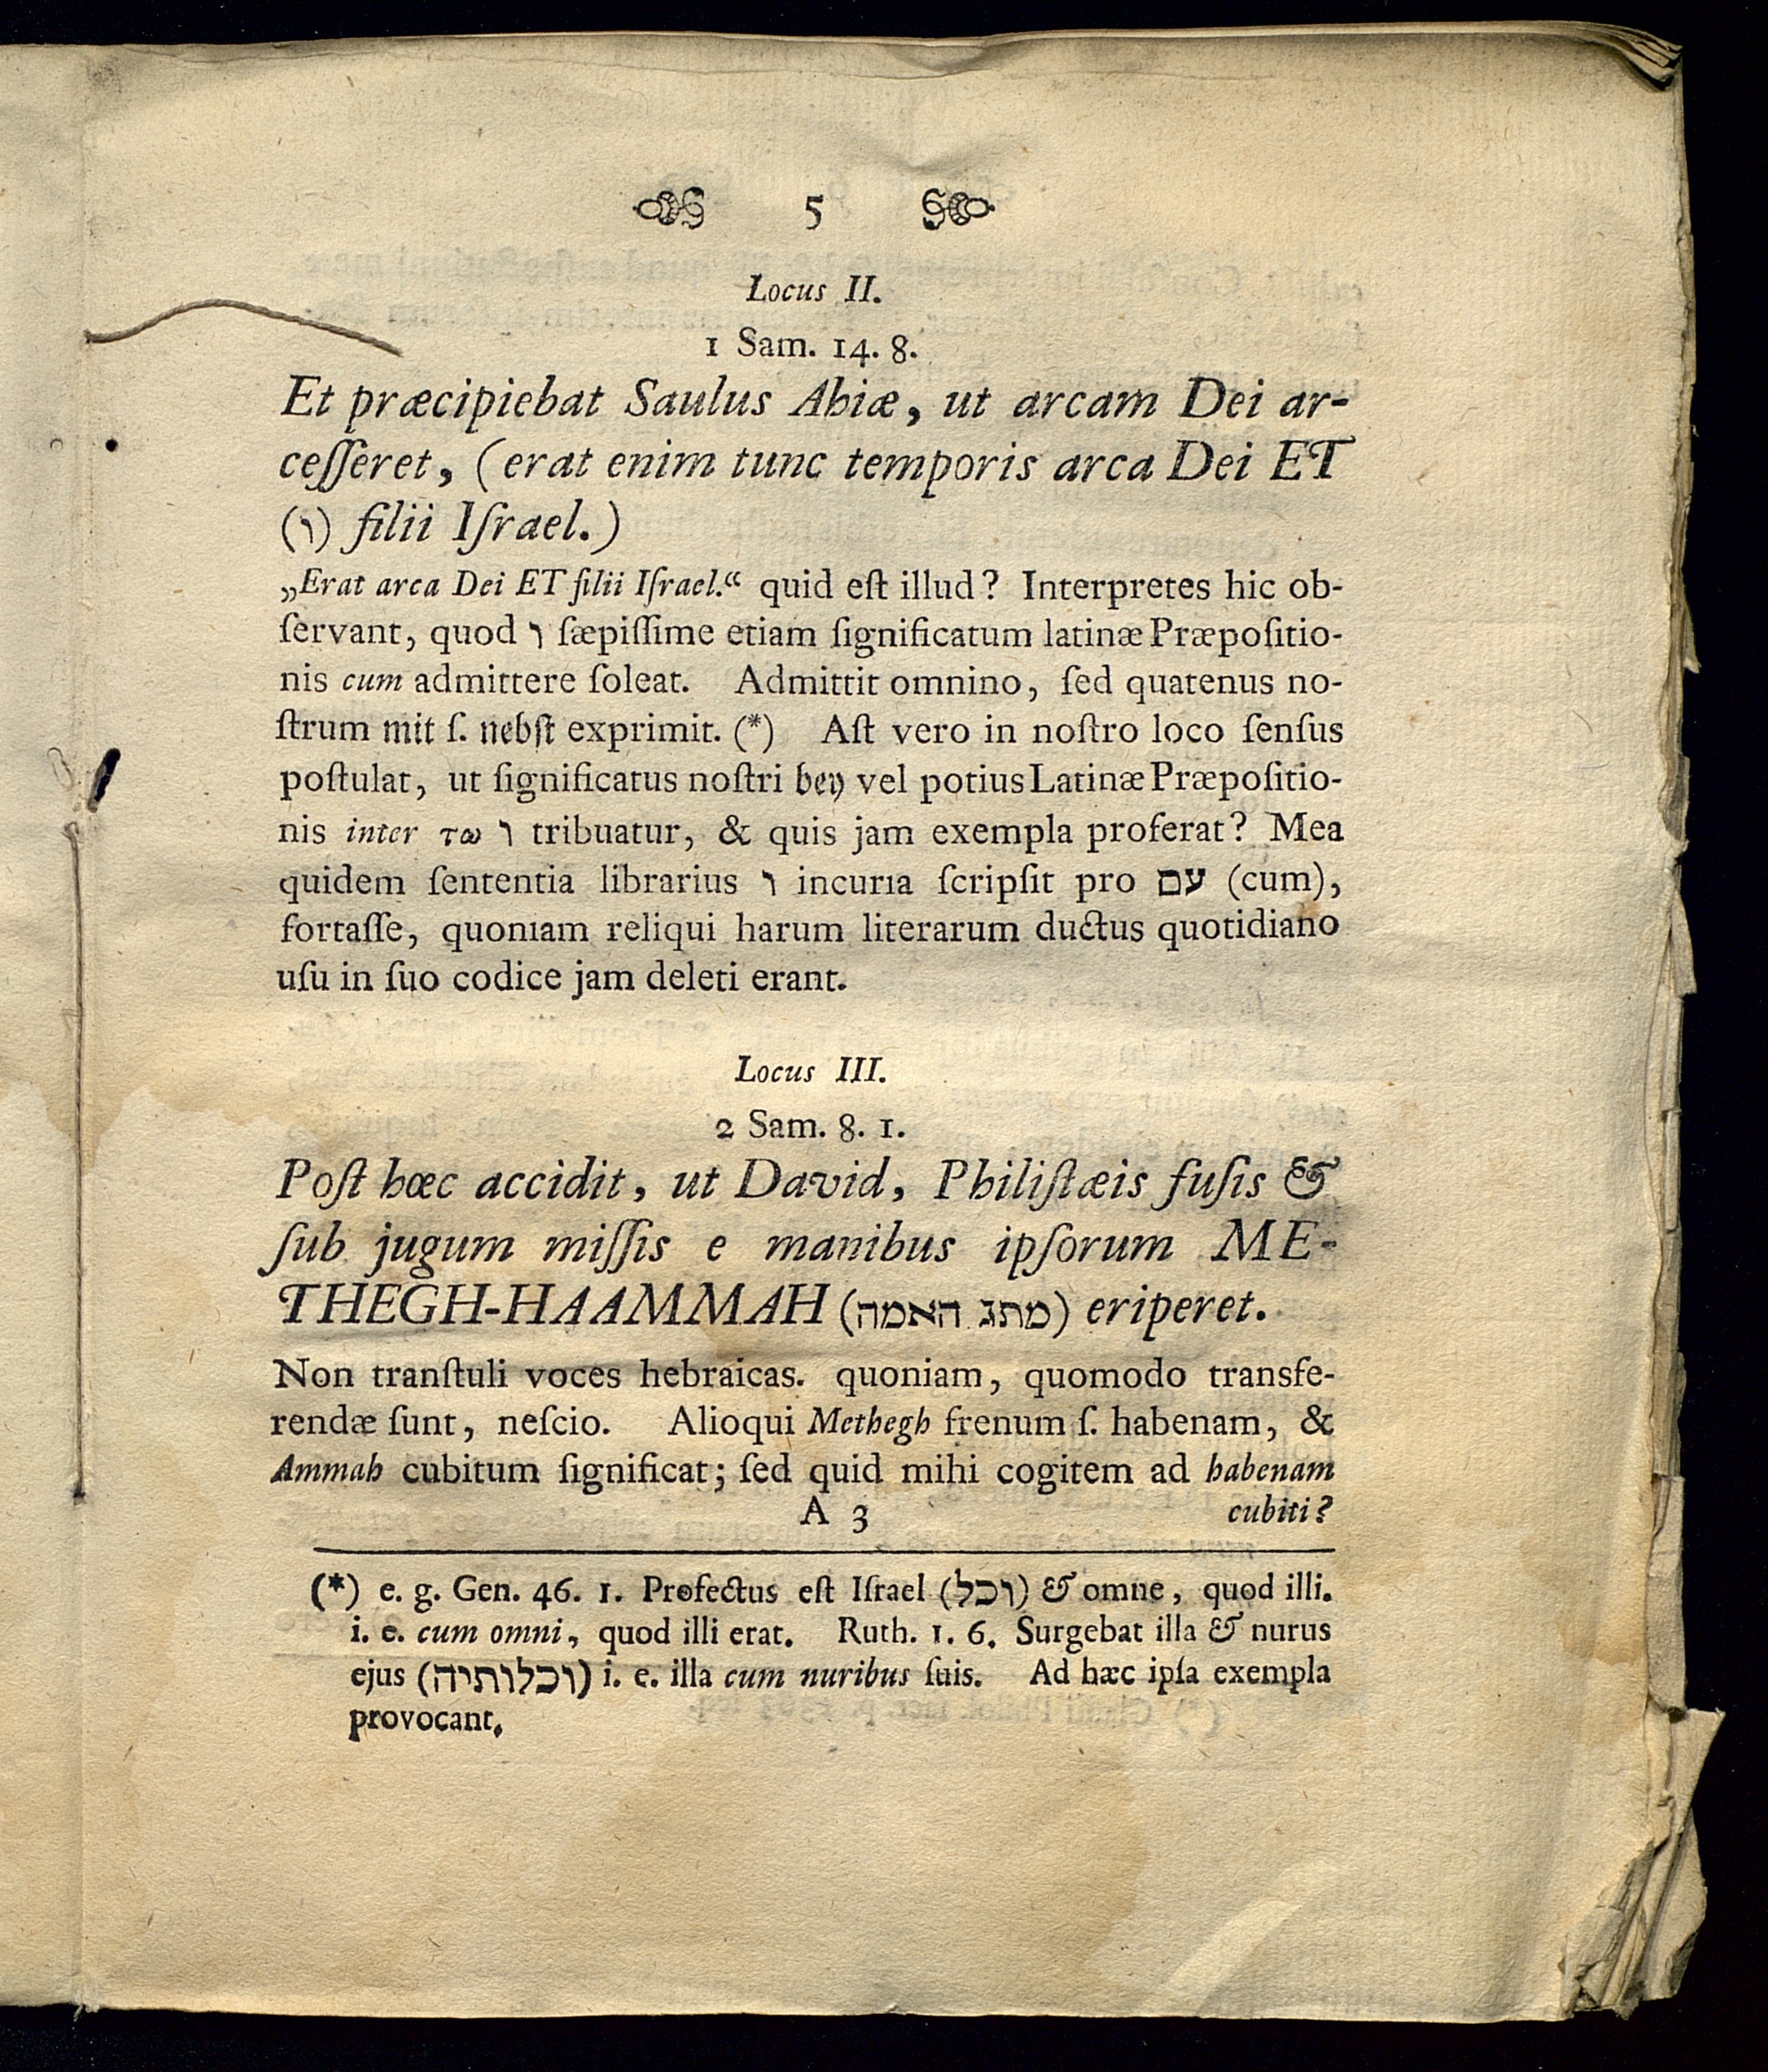 5
Locus II.
1 Sam. 14. 8.
Et præcipiebat Saulus Ahiæ, ut arcam Dei ar-
ceſſeret, (erat enim tunc temporis arca Dei ET
(ו) filii Iſrael.)
„Erat arca Dei ET filii Iſrael.“ quid eſt illud? Interpretes hic ob-
ſervant, quod ו ſæpiſſime etiam ſignificatum latinæ Præpoſitio-
nis cum admittere ſoleat. Admittit omnino, ſed quatenus no-
ſtrum mit ſ. nebſt exprimit. (*) Aſt vero in noſtro loco ſenſus
poſtulat, ut ſignificatus noſtri bey vel potius Latinæ Præpoſitio-
nis inter τω ו tribuatur, & quis jam exempla proferat? Mea
quidem ſententia librarius ו incuria ſcripſit pro עם (cum),
fortaſſe, quoniam reliqui harum literarum ductus quotidiano
uſu in ſuo codice jam deleti erant.
Locus III.
2 Sam. 8. 1.
Poſt hæc accidit, ut David, Philiſtæis fuſis &
ſub jugum miſſis e manibus ipſorum ME-
THEGH-HAAMMAH (מתג האמה) eriperet.
Non tranſtuli voces hebraicas. quoniam, quomodo transfe-
rendæ ſunt, neſcio. Alioqui Methegh frenum ſ. habenam, &
Ammah cubitum ſignificat; ſed quid mihi cogitem ad habenam
A 3 cubiti?
(*) e. g. Gen. 46. 1. Profectus eſt Iſrael (וכל) & omne, quod illi.
i. e. cum omni, quod illi erat. Ruth. 1. 6. Surgebat illa & nurus
ejus (וכלותיה) i. e. illa cum nuribus ſuis. Ad hæc ipſa exempla
provocant.